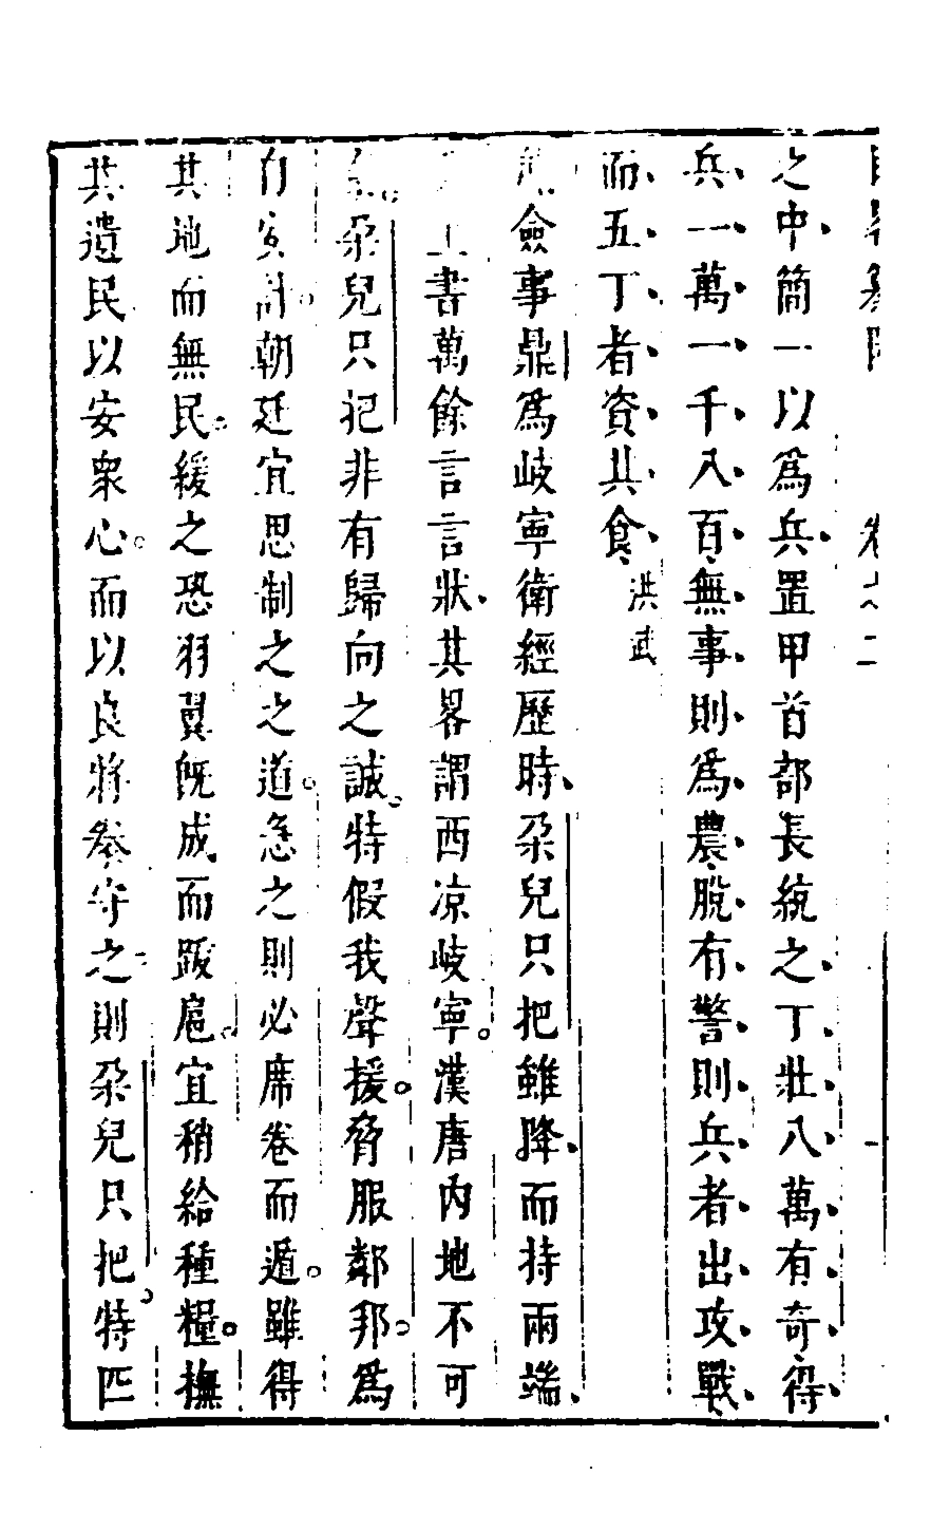 卷之二
之中簡一以為兵置甲首部長統之丁壯八萬有奇得
兵一萬一千八百無事則為農脫有警則兵者出攻戰
而五丁者資其食洪武
僉事鼎為岐寧衛經歷時朶兒只把雖降而持兩端
上書萬餘言言狀其畧謂西凉岐寧漢唐內地不可
朶兒只把非有歸向之誠特假我聲援脅服鄰邦為
自安計朝廷宜思制之之道急之則必席卷而遁雖得
其地而無民緩之恐羽翼旣成而跋扈宜稍給種糧撫
其遺民以安衆心而以良將叅守之則朶兒只把特匹